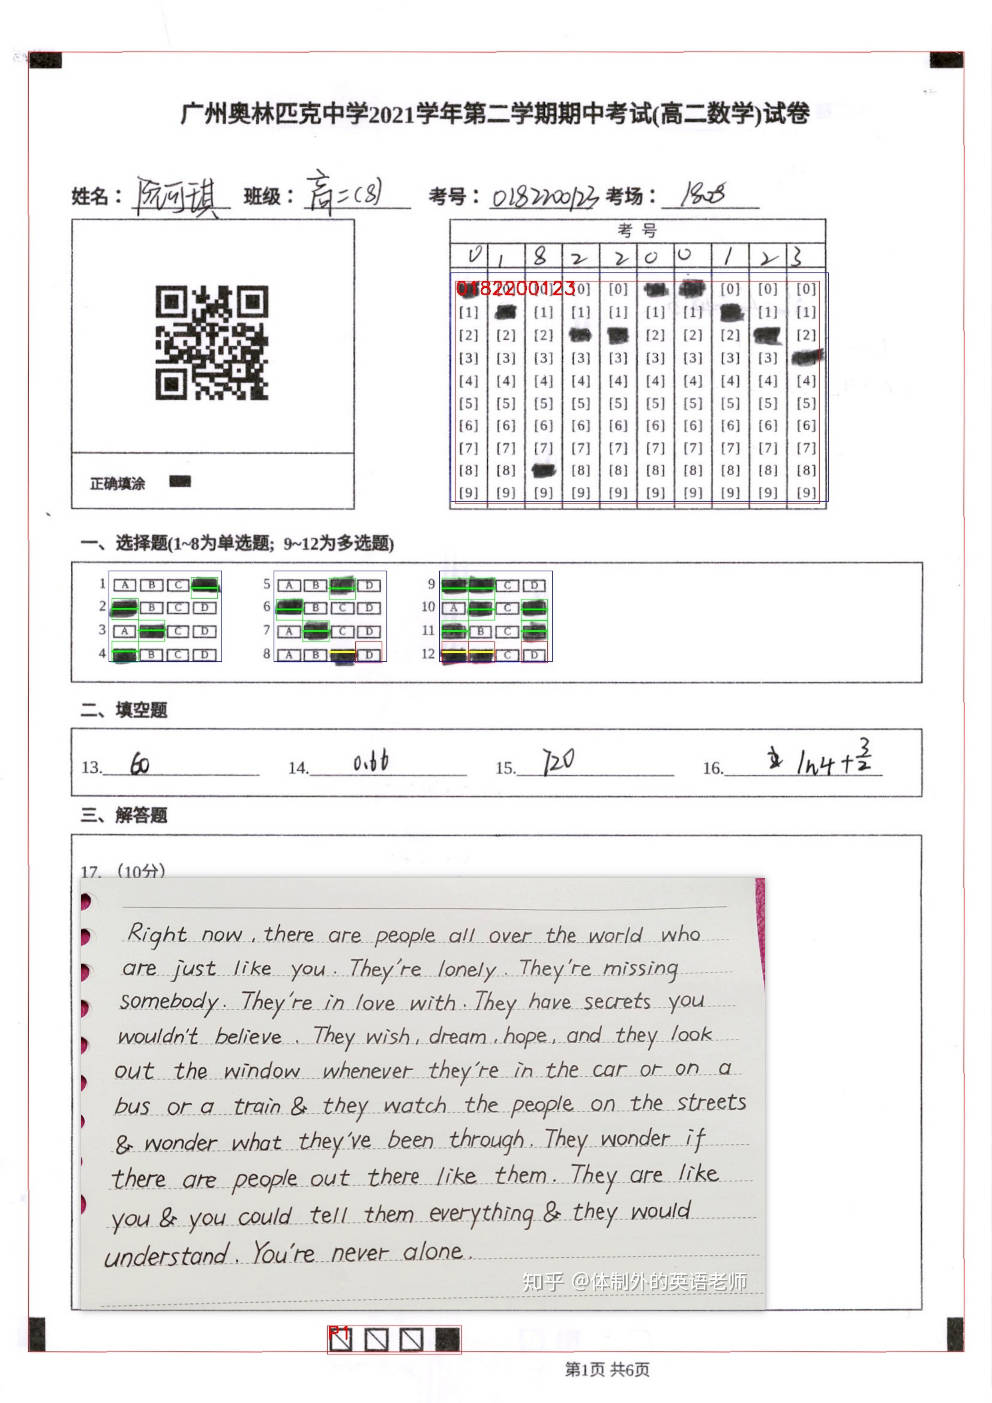 广州奥林匹克中学2021学年第二学期期中考试(高二数学)试卷
姓名： 阮可琪 班级： 高二(8) 考号： 0182200123 考场：
考 号
0 1 8 2 2 0 0 1 2 3
0182200123
[0] [0] [0] [0] [0]
[1] [1] [1] [1] [1] [1] [1] [1]
[2] [2] [2] [2] [2] [2] [2]
[3] [3] [3] [3] [3] [3] [3] [3] [3]
[4] [4] [4] [4] [4] [4] [4] [4] [4] [4]
[5] [5] [5] [5] [5] [5] [5] [5] [5] [5]
[6] [6] [6] [6] [6] [6] [6] [6] [6] [6]
[7] [7] [7] [7] [7] [7] [7] [7] [7] [7]
[8] [8] [8] [8] [8] [8] [8] [8] [8]
[9] [9] [9] [9] [9] [9] [9] [9] [9] [9]
正确填涂
一、选择题(1~8为单选题; 9~12为多选题)
1 A B C 5 A B D 9 C D
2 B C D 6 B C D 10 A C
3 A C D 7 A C D 11 B C
4 B C D 8 A B D 12 C D
二、填空题
13. 60 14. 0.66 15. 720 16. ln4+3/2
三、解答题
17. （10分）
Right now, there are people all over the world who
are just like you. They're lonely. They're missing
somebody. They're in love with. They have secrets you
wouldn't believe. They wish, dream, hope, and they look
out the window whenever they're in the car or on a
bus or a train & they watch the people on the streets
& wonder what they've been through. They wonder if
there are people out there like them. They are like
you & you could tell them everything & they would
understand. You're never alone.
知乎 @体制外的英语老师
P1
第1页 共6页